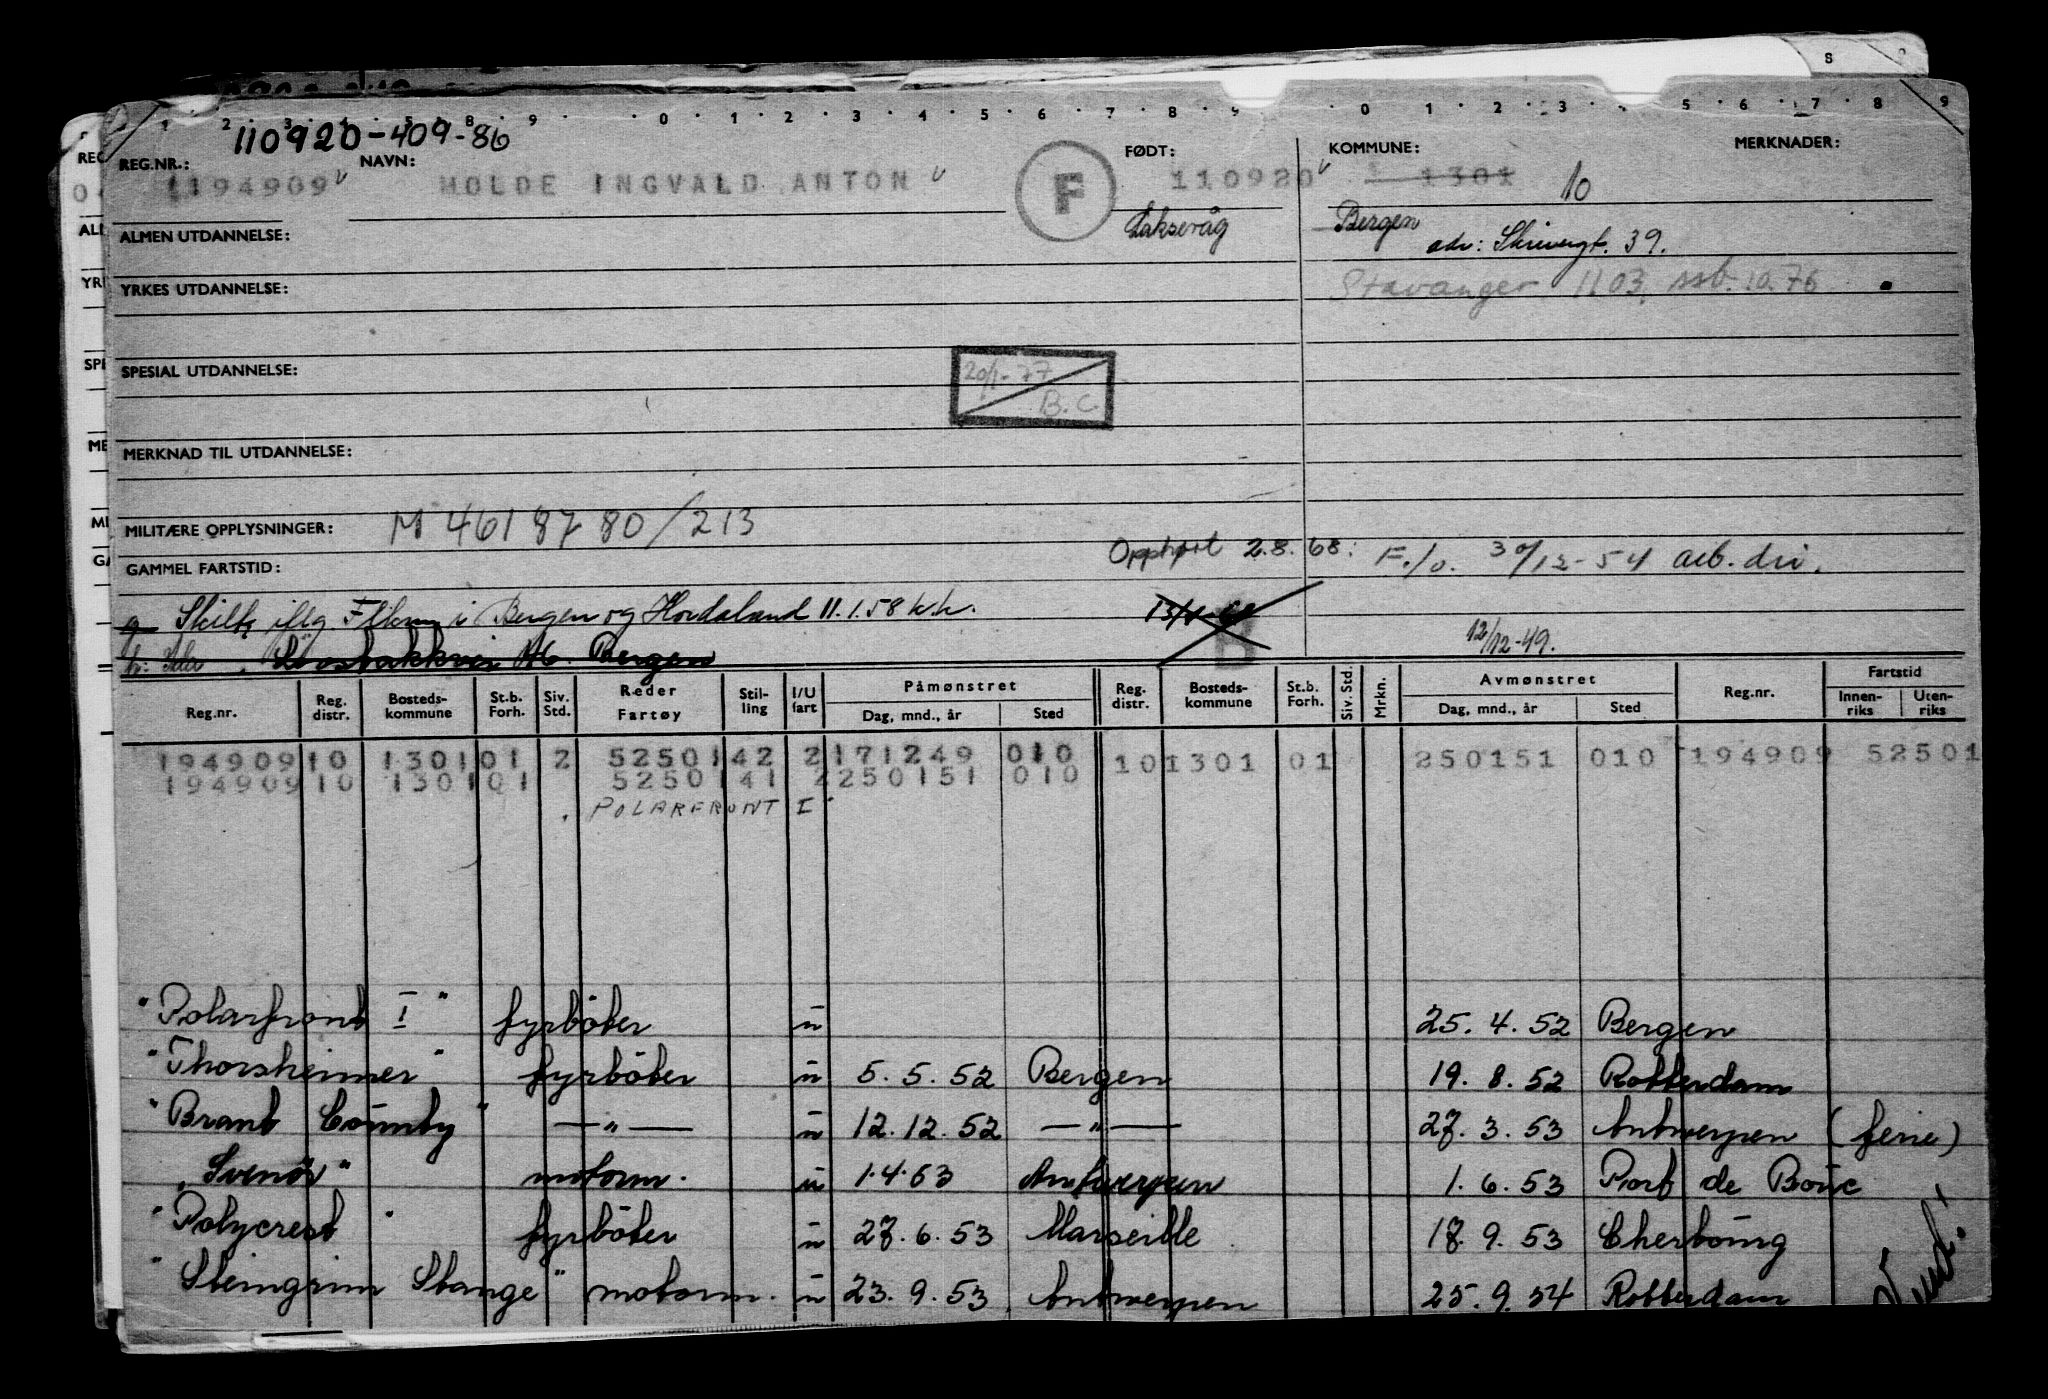 110920-409-86
REG.NR.: NAVN: FØDT: KOMMUNE: MERKNADER:
1194909 MOLDE INGVALD ANTON F 110920 1301 10
Laksevåg Bergen
ALMEN UTDANNELSE: adr: Skivergt. 39.
YRKES UTDANNELSE: Stavanger 1103, ssb. 10.76
SPESIAL UTDANNELSE: 20/1-77 B.C.
MERKNAD TIL UTDANNELSE:
MILITÆRE OPPLYSNINGER: M 4618780/213
GAMMEL FARTSTID: Opphørt 2.8.68: F./o. 30/12-54 arb.div.
g Skilt iflg. Flkm i Bergen og Hordaland 11.1.58 k.h.
Bergen 12/12-49.
Reg.nr. Reg. distr. Bosteds-kommune St.b. Forh. Siv. Std. Reder Fartøy Stil-ling I/U fart Påmønstret Dag, mnd., år Sted Reg. distr. Bosteds-kommune St.b. Forh. Siv. Std. Mrkn. Avmønstret Dag, mnd., år Sted Reg.nr. Fartstid Innen-riks Uten-riks
194909 10 1301 01 2 5250 142 2 171249 010 10 1301 01 250151 010 194909 52501
194909 10 1301 01 5250 141 2 250151 010
POLARFRONT I
"Polarfront I" fyrböter u 25.4.52 Bergen
"Thorsheimer" fyrböter u 5.5.52 Bergen 19.8.52 Rotterdam
"Brant County" —"— u 12.12.52 —"— 27.3.53 Antwerpen (ferie)
"Svenör" motorm. u 1.4.53 Antwerpen 1.6.53 Port de Bouc
"Polycrest" fyrböter u 27.6.53 Marseille 17.9.53 Cherbourg
"Steingrim Stange" motorm. u 23.9.53 Antwerpen 25.9.54 Rotterdam